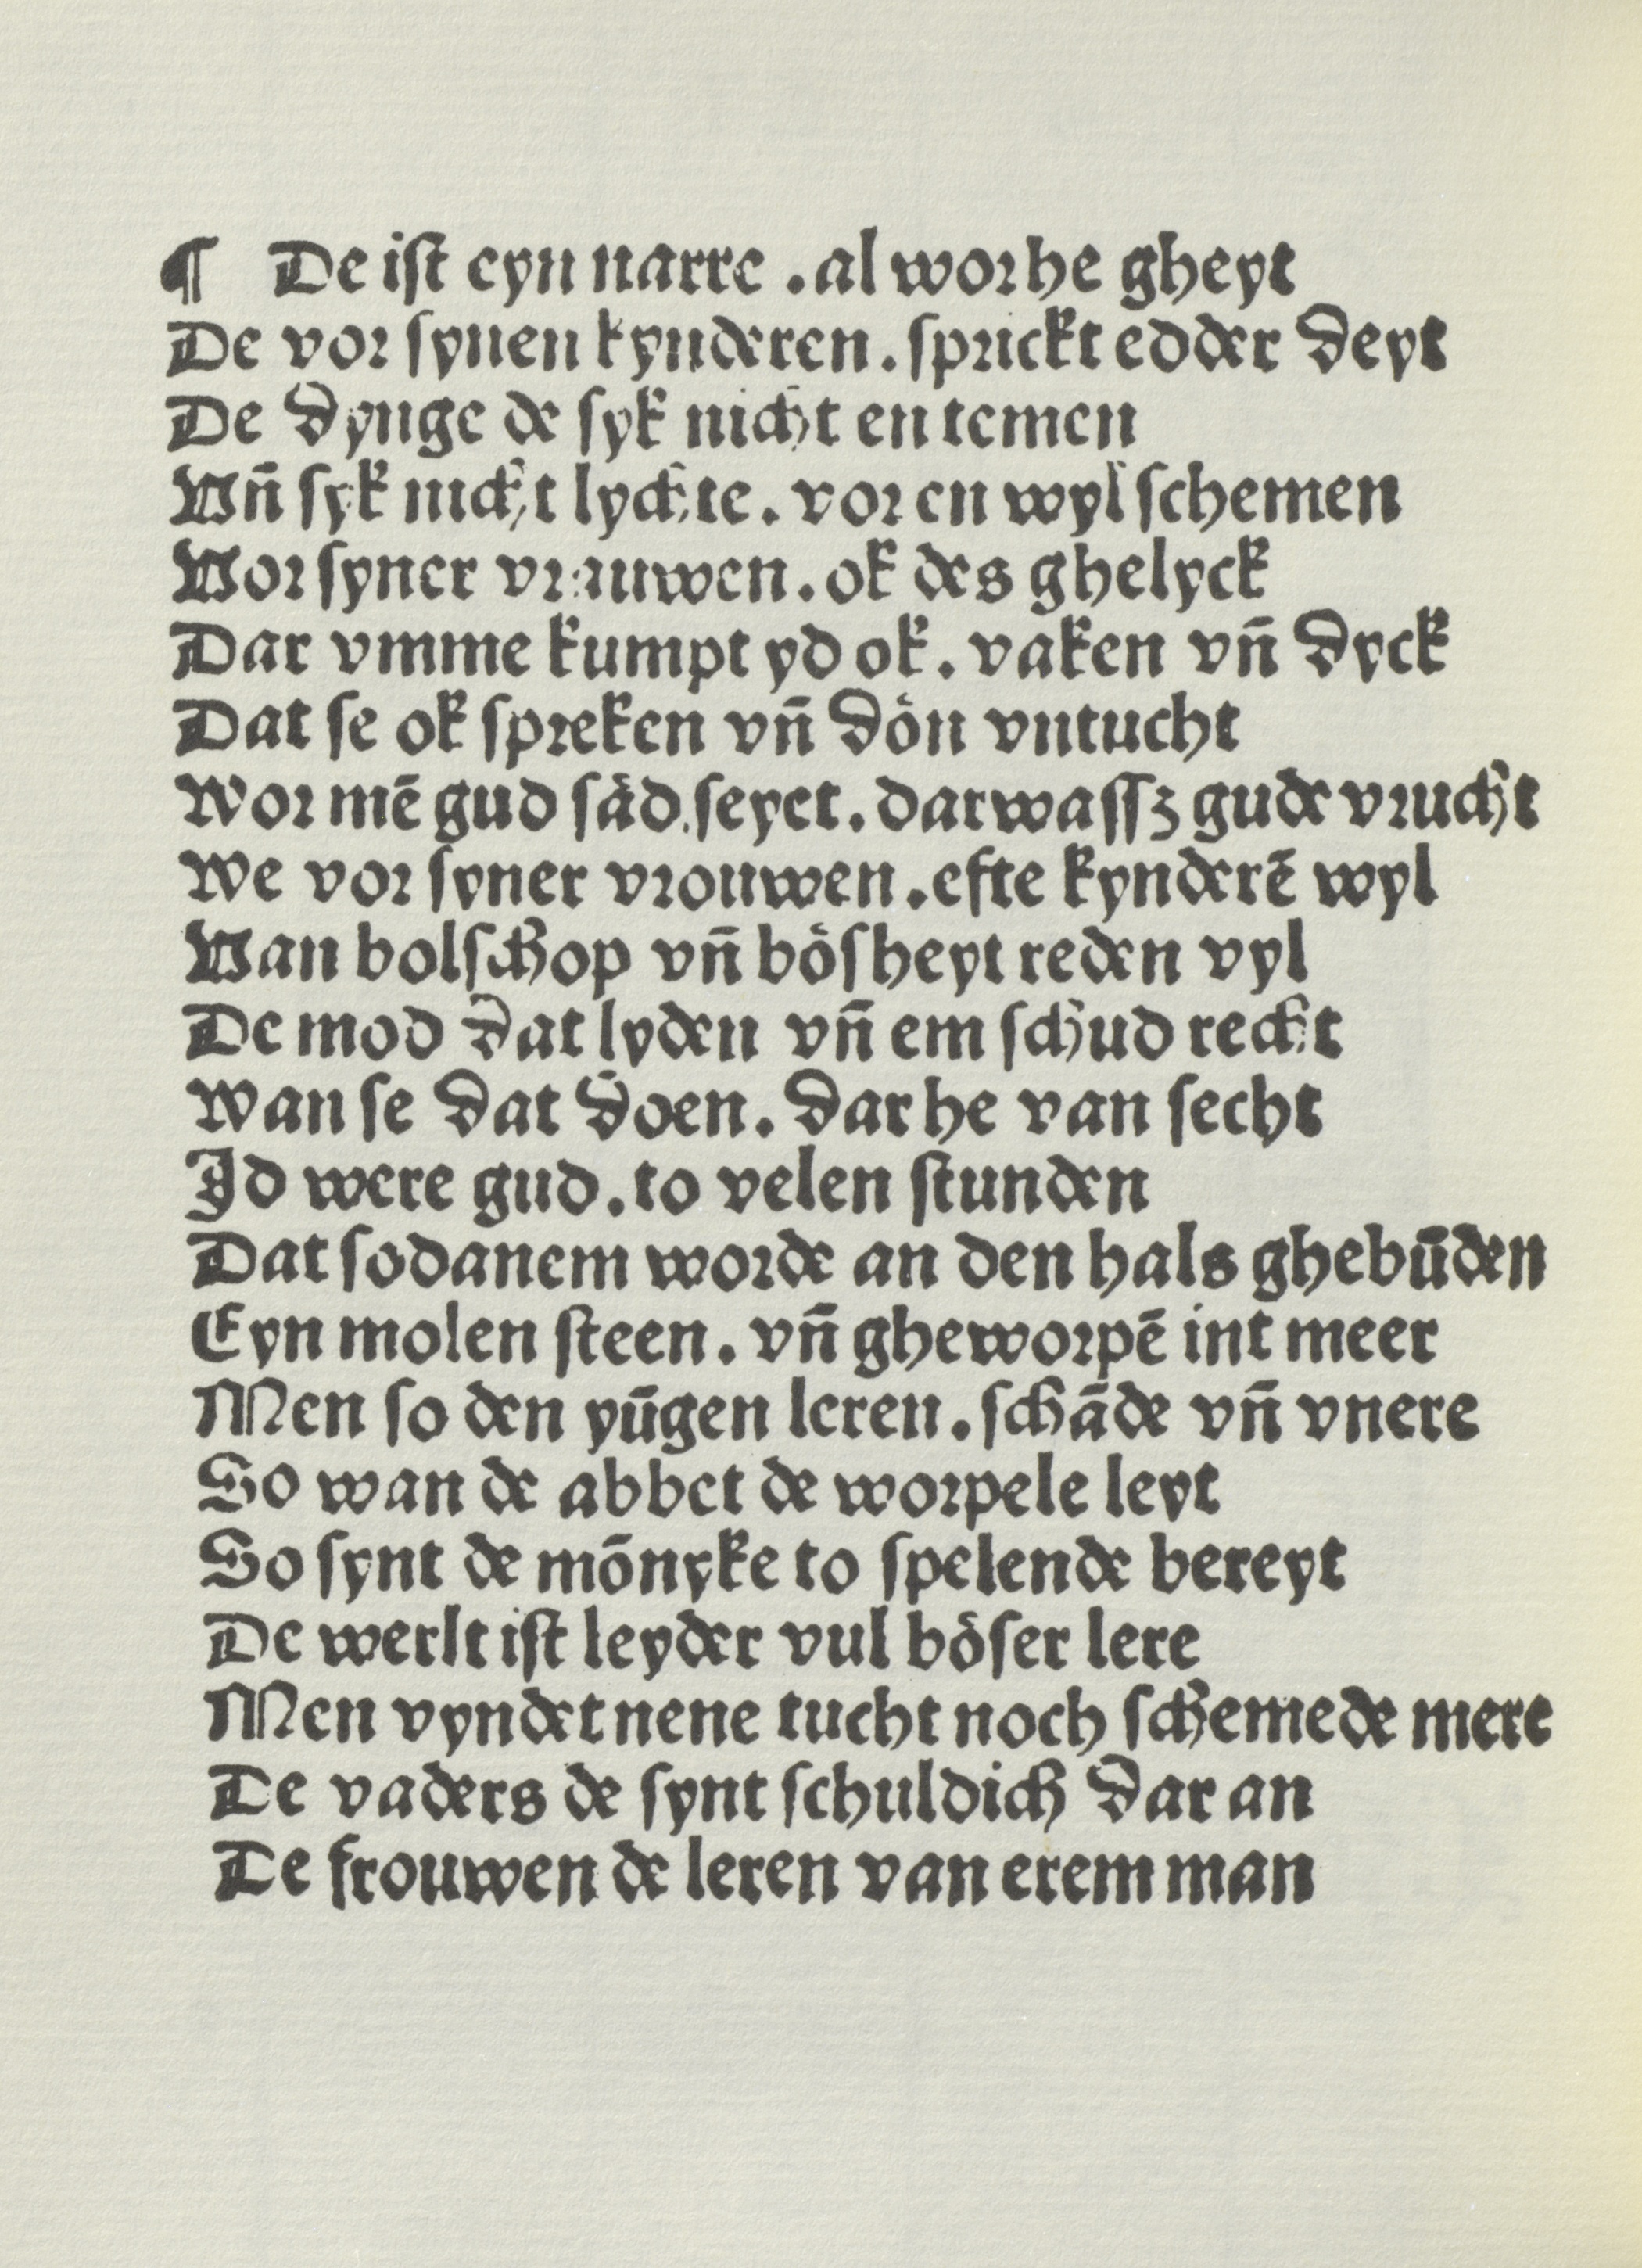 ¶ De iſt eyn narre . al wor he gheyt
De vor ſynen kynderen . ſprickt edder deyt
De dynge de ſyk nicht en temen
Vñ ſyk nicht lychte . vor en wyl ſchemen
Vor ſyner vrauwen . ok des ghelyck
Dar vmme kumpt yd ok . vaken vñ dyck
Dat ſe ok ſpreken vñ dön vntucht
Wor mē gud ſäd ſeyet . dar waſſz gude vrucht
We vor ſyner vrouwen . efte kynderē wyl
Van bolſchop vñ böſheyt reden vyl
De mod dat lyden vñ em ſchud recht
Wan ſe dat doen . dar he van ſecht
Id were gud . to velen ſtunden
Dat ſodanem worde an den hals ghebūden
Eyn molen ſteen . vñ gheworpē int meer
Men ſo den yūgen leren . ſchāde vñ vnere
So wan de abbet de worpele leyt
So ſynt de mōnyke to ſpelende bereyt
De werlt iſt leyder vul böſer lere
Men vyndet nene tucht noch ſchemede mere
De vaders de ſynt ſchuldich dar an
De frouwen de leren van erem man